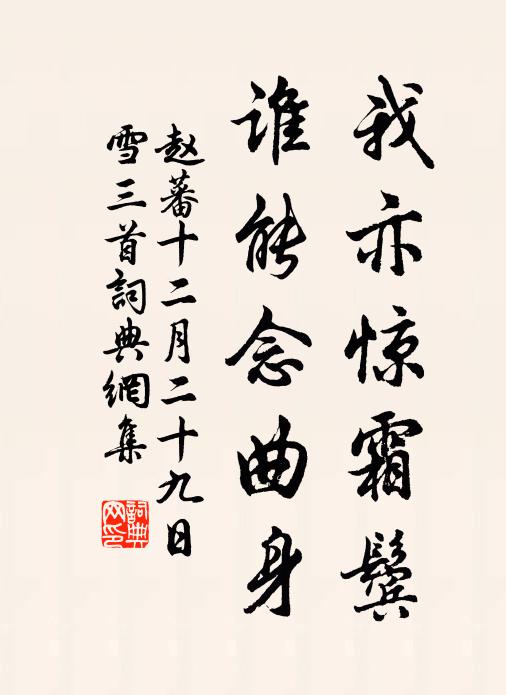 我亦惊霜鬓
谁能念曲身
赵蕃十二月二十九日
雪三首詞典網集
詞典网印